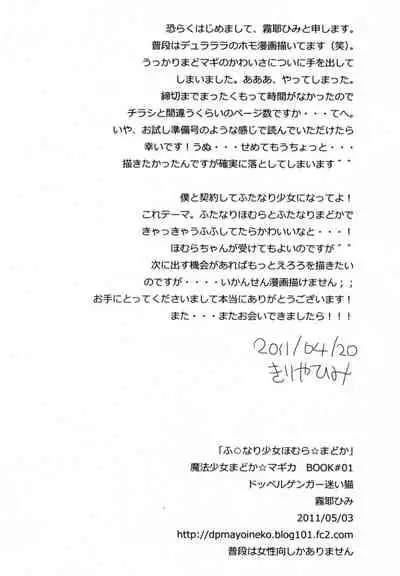 恐らくはじめまして、霧耶ひみと申します。
普段はデュラララのホモ漫画描いてます（笑）。
うっかりまどマギのかわいさについに手を出して
しまいました。あああ、やってしまった。
締切までまったくもって時間がなかったので
チラシと間違うくらいのページ数ですか・・・てへ。
いや、お試し準備号のような感じで読んでいただけたら
幸いです！うぬ・・・せめてもうちょっと・・・
描きたかったんですが確実に落としてしまいます＾＾
僕と契約してふたなり少女になってよ！
これテーマ。ふたなりほむらとふたなりまどかで
きゃっきゃうふふしてたらかわいいなと・・・！
ほむらちゃんが受けてもよいのですが＾＾
次に出す機会があればもっとえろろを描きたい
のですが・・・・いかんせん漫画描けません；；
お手にとってくださいまして本当にありがとうございます！
また・・・またお会いできましたら！！！
2011/04/20
きりやひみ
「ふ○なり少女ほむら☆まどか」
魔法少女まどか☆マギカ　BOOK#01
ドッペルゲンガー迷い猫
霧耶ひみ
2011/05/03
http://dpmayoineko.blog101.fc2.com/
普段は女性向しかありません